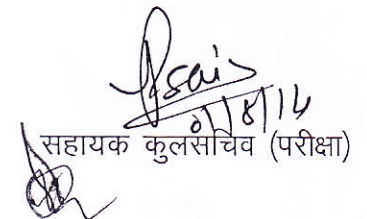 01/8/14
सहायक कुलसचिव (परीक्षा)